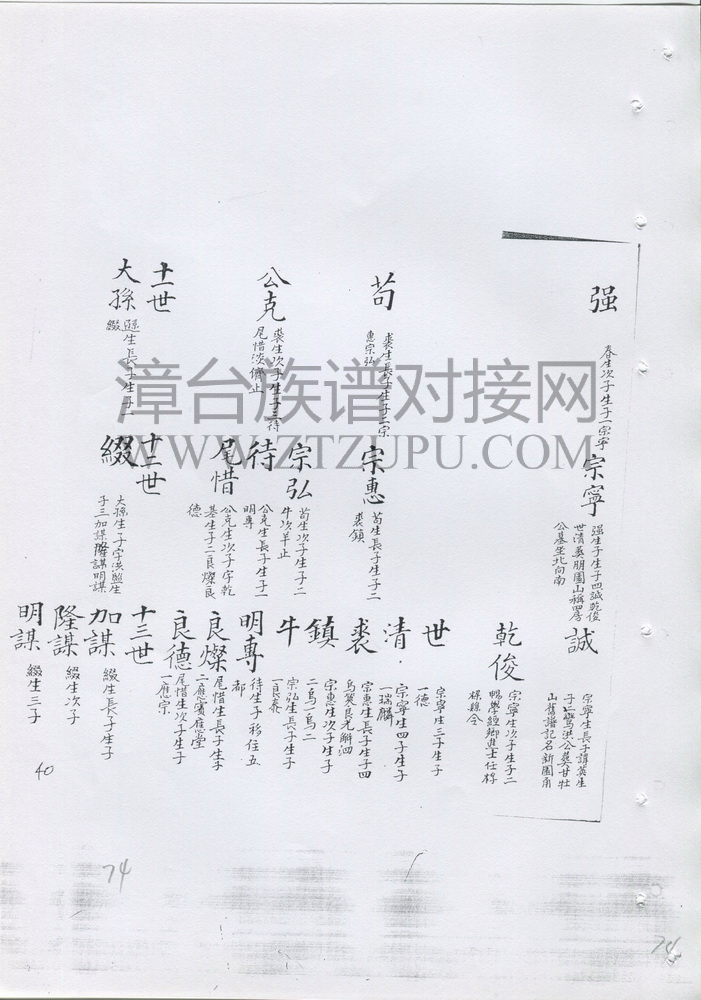 强
春生次子生子一宗寧
宗寧
强生子生子四誠乾俊
世清葵朋園山稱四房
公墓坐北向南
誠
宗寧生長子諱英生
山舊譜記名新園角
乾俊
宗寧生次子生子二
世
宗寧生三子生子
一德
清
宗寧生四子生子
一瑞麟
苟
裘生長子生子二宗
惠宗弘
宗惠
苟生長子生子二
裘鎮
裘
宗惠生長子生子四
鎮
宗惠生次子生子
二烏一烏二
公克
裘生次子生子三待
尾惜淡儕止
宗弘
苟生次子生子二
牛次羊止
牛
宗弘生長子生子
一良泰
待
公克生長子生子一
明專
明專
待生子移住五
都
尾惜
公克生次子字乾
基生子二良燦良
德
良燦
尾惜生長子生子
二應賓應堂
良德
尾惜生次子生子
一應宗
十一世
大孫
遜生長子生子一
綴
十二世
綴
大孫生子字洪盤生
子三加謀隆謀明謀
十三世
加謀
綴生長子生子
隆謀
綴生次子
明謀
綴生三子
漳台族谱对接网
WWW.ZTZUPU.COM
40
74
74